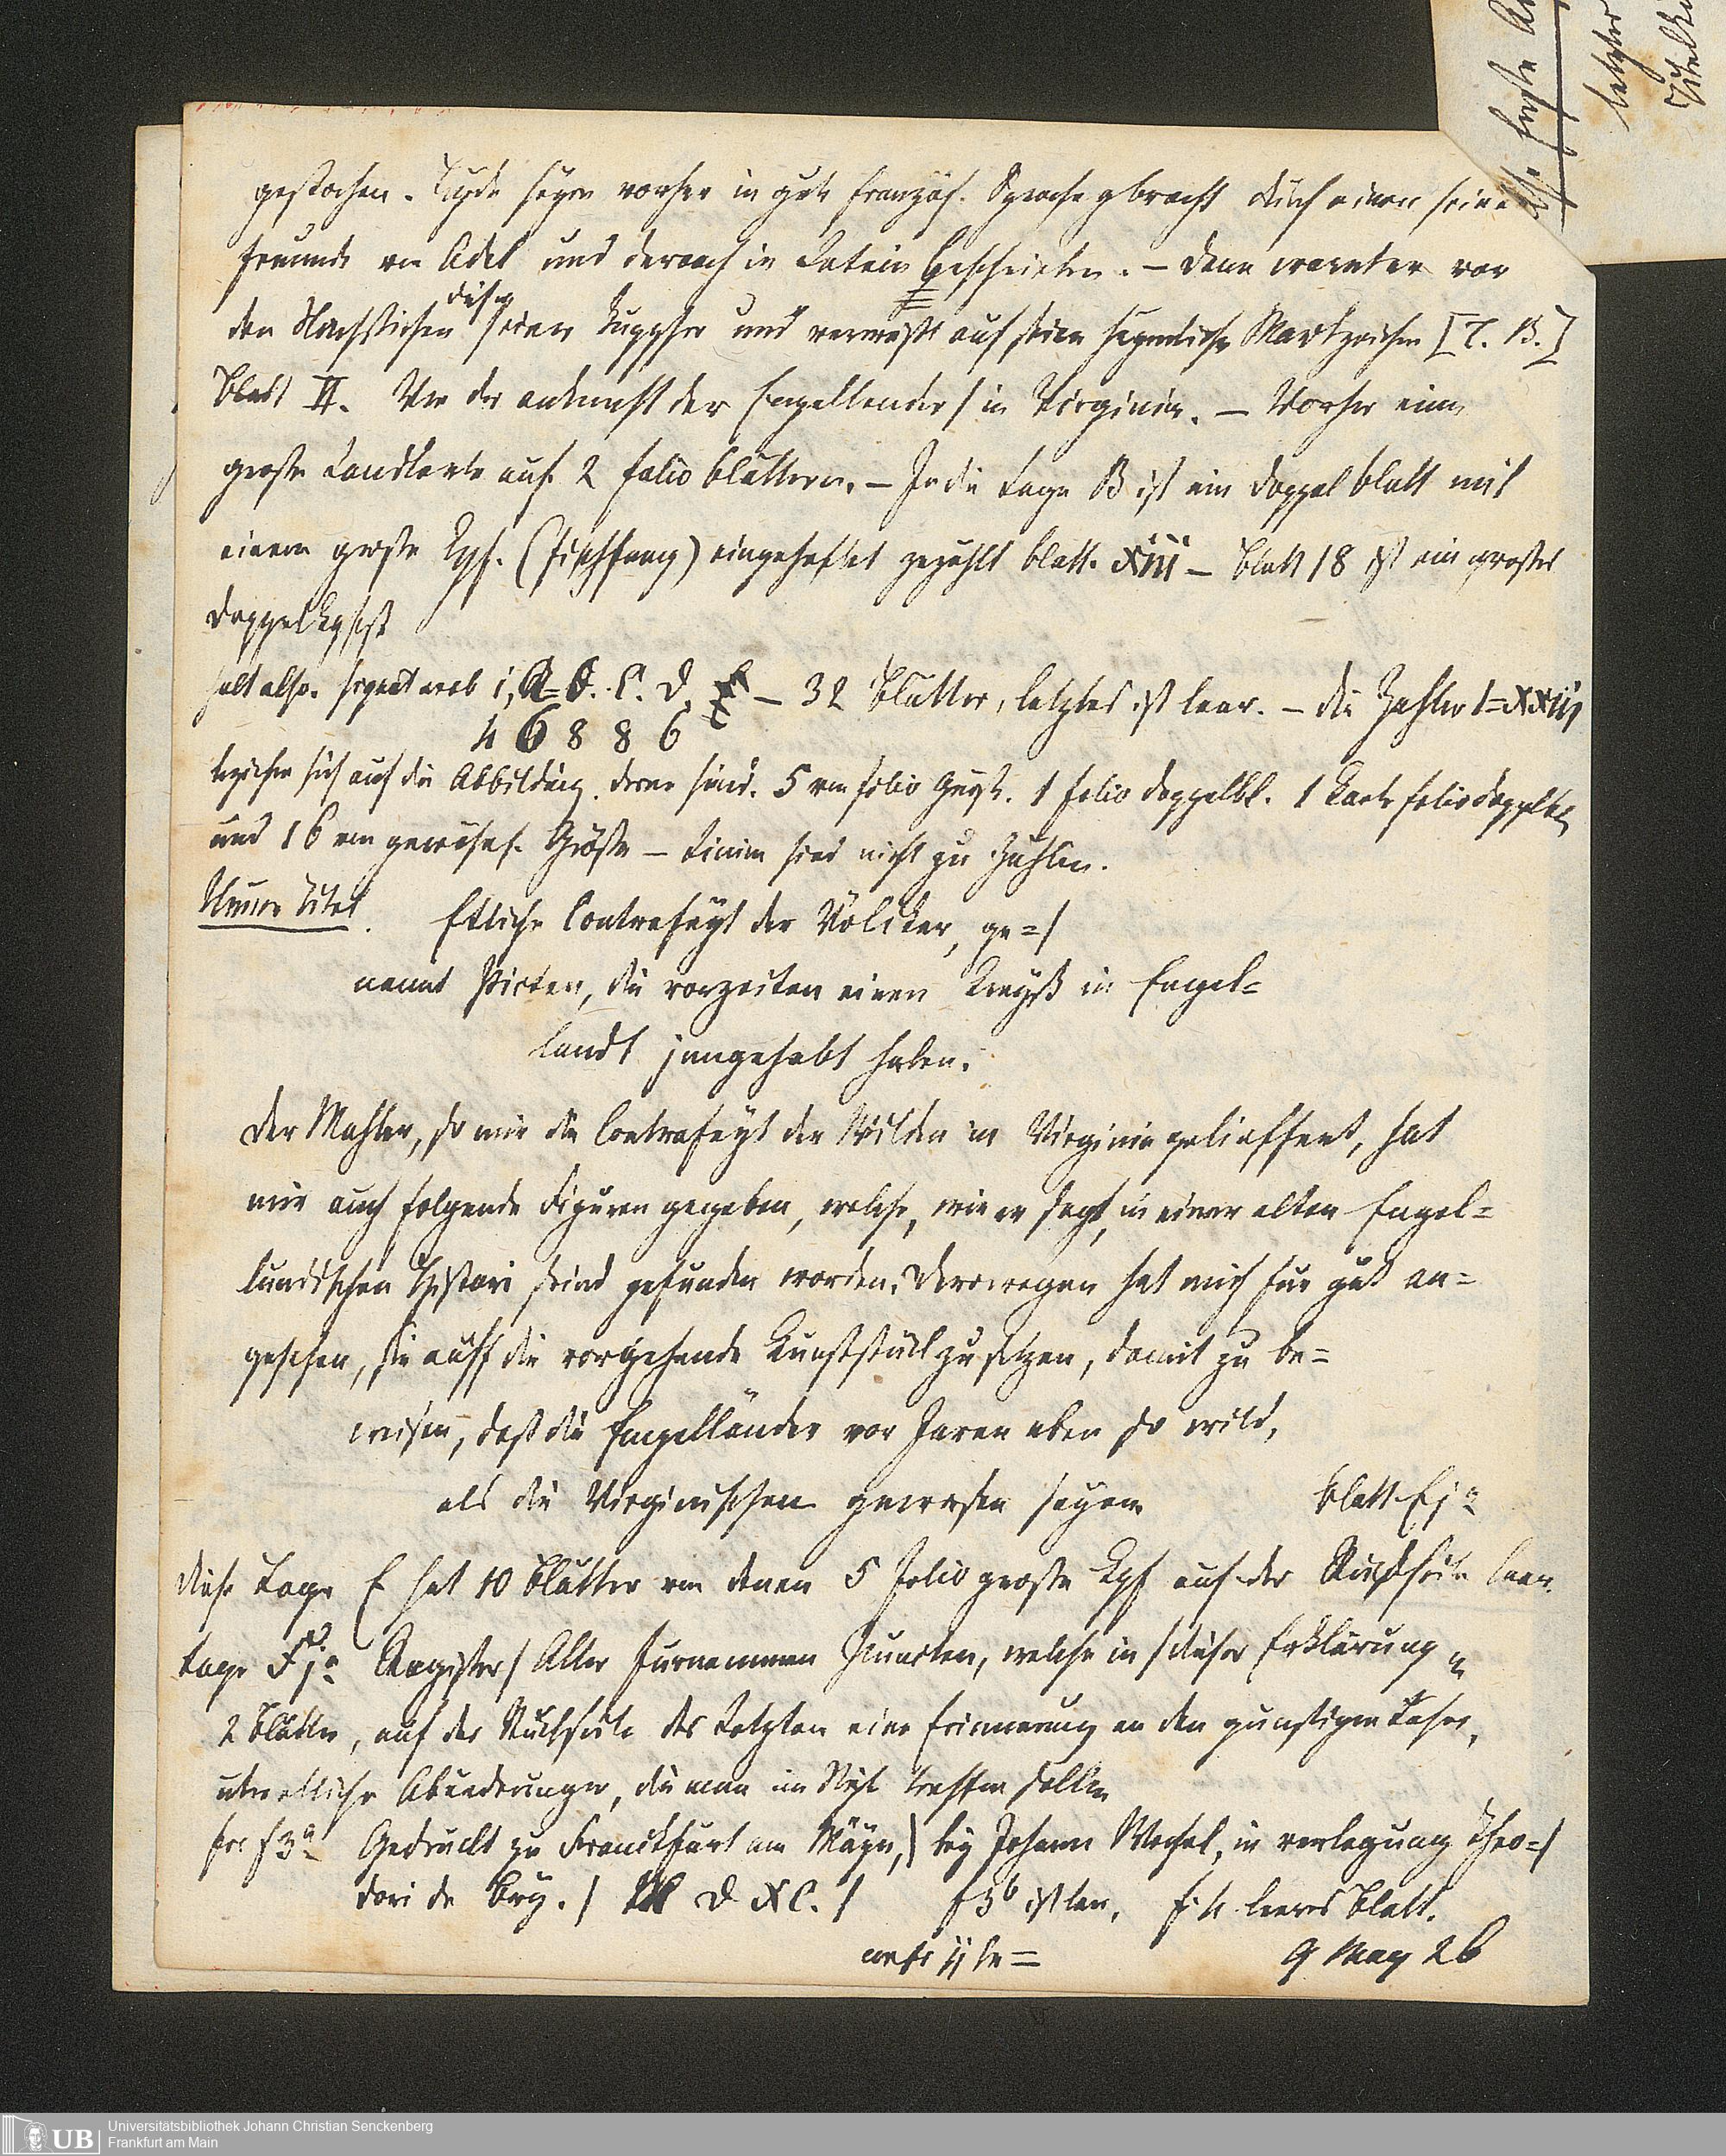 gestochen. Beyde seyen vorher in gute französ. Sprache gebracht durch einen seiner
freunde von Adel und darnach in Latein beschrieben. – dann warnt er vor
den Nachstichen dieser seiner Kupffer und verweist auf seine heymliche Markzeichen [T. B.]
Blatt II. Von der ankunfft der Engellender / in Virginia. – Vorher eine
große Landkarte auf 2 folio blättern. – In die Lage B ist ein doppel blatt mit
einem große Kpf. (Fischfang) eingeheftet gezählt blatt. XIII – blatt 18 ist ein großes
doppel
halt also. i, A. B. C. D. E – 32 Blätter, letztes ist leer. – die Zahlen 1=XXIII
4 6 8 8 6
beziehen sich auf die Abbildung. deren sind. 5 von folio Größe. 1 folio doppelbl. 1 Karte folio doppelbl.
und 16 von gewöhnl. Größe – sind nicht zu zählen.
Neuer Titel. Etliche Contrafeyt der Völcker, ge=/
nannt Picten, die vorzeiten einen Kreyß in Engel=
landt jnngehabt haben.
Der Mahler, so mir die Contrafeyt der Wilden in Virginia gelieffert, hat
mir auch folgende Figuren gegeben, welche, wie er sagt, in einer alten Engel=
lendischen Histori seind gefunden worden. Derowegen hat mich für gut an=
gesehen, sie auff die vorgehende Kunststück zu setzen, damit zu be=
weisen, daß die Engelländer vor Jaren eben so wild,
als die Virginischen gewesen seyen blatt E j a
diese Lage E hat 10 Blätter von denen 5 Folio große Kpf auf der Rückseite leer
Lage F j a Register / Aller furnemmen Puncten, welche in / dieser Erklärung
2 Blätter, auf der Rückseite des Letzten eine Erinnerung an den gunstigen Leser,
etliche Abenderungen, die man im treffen solle
F 3 a Gedruckt zu Franckfurt am Mäyn, / bey Johann Wechel, in verlegung Theo=/
dori de Bry. / M D XC. / F 3 b ist leer, F 4 leeres Blatt.
9 May 26
letzter
Universitätsbibliothek Johann Christian Senckenberg
Frankfurt am Main
UB